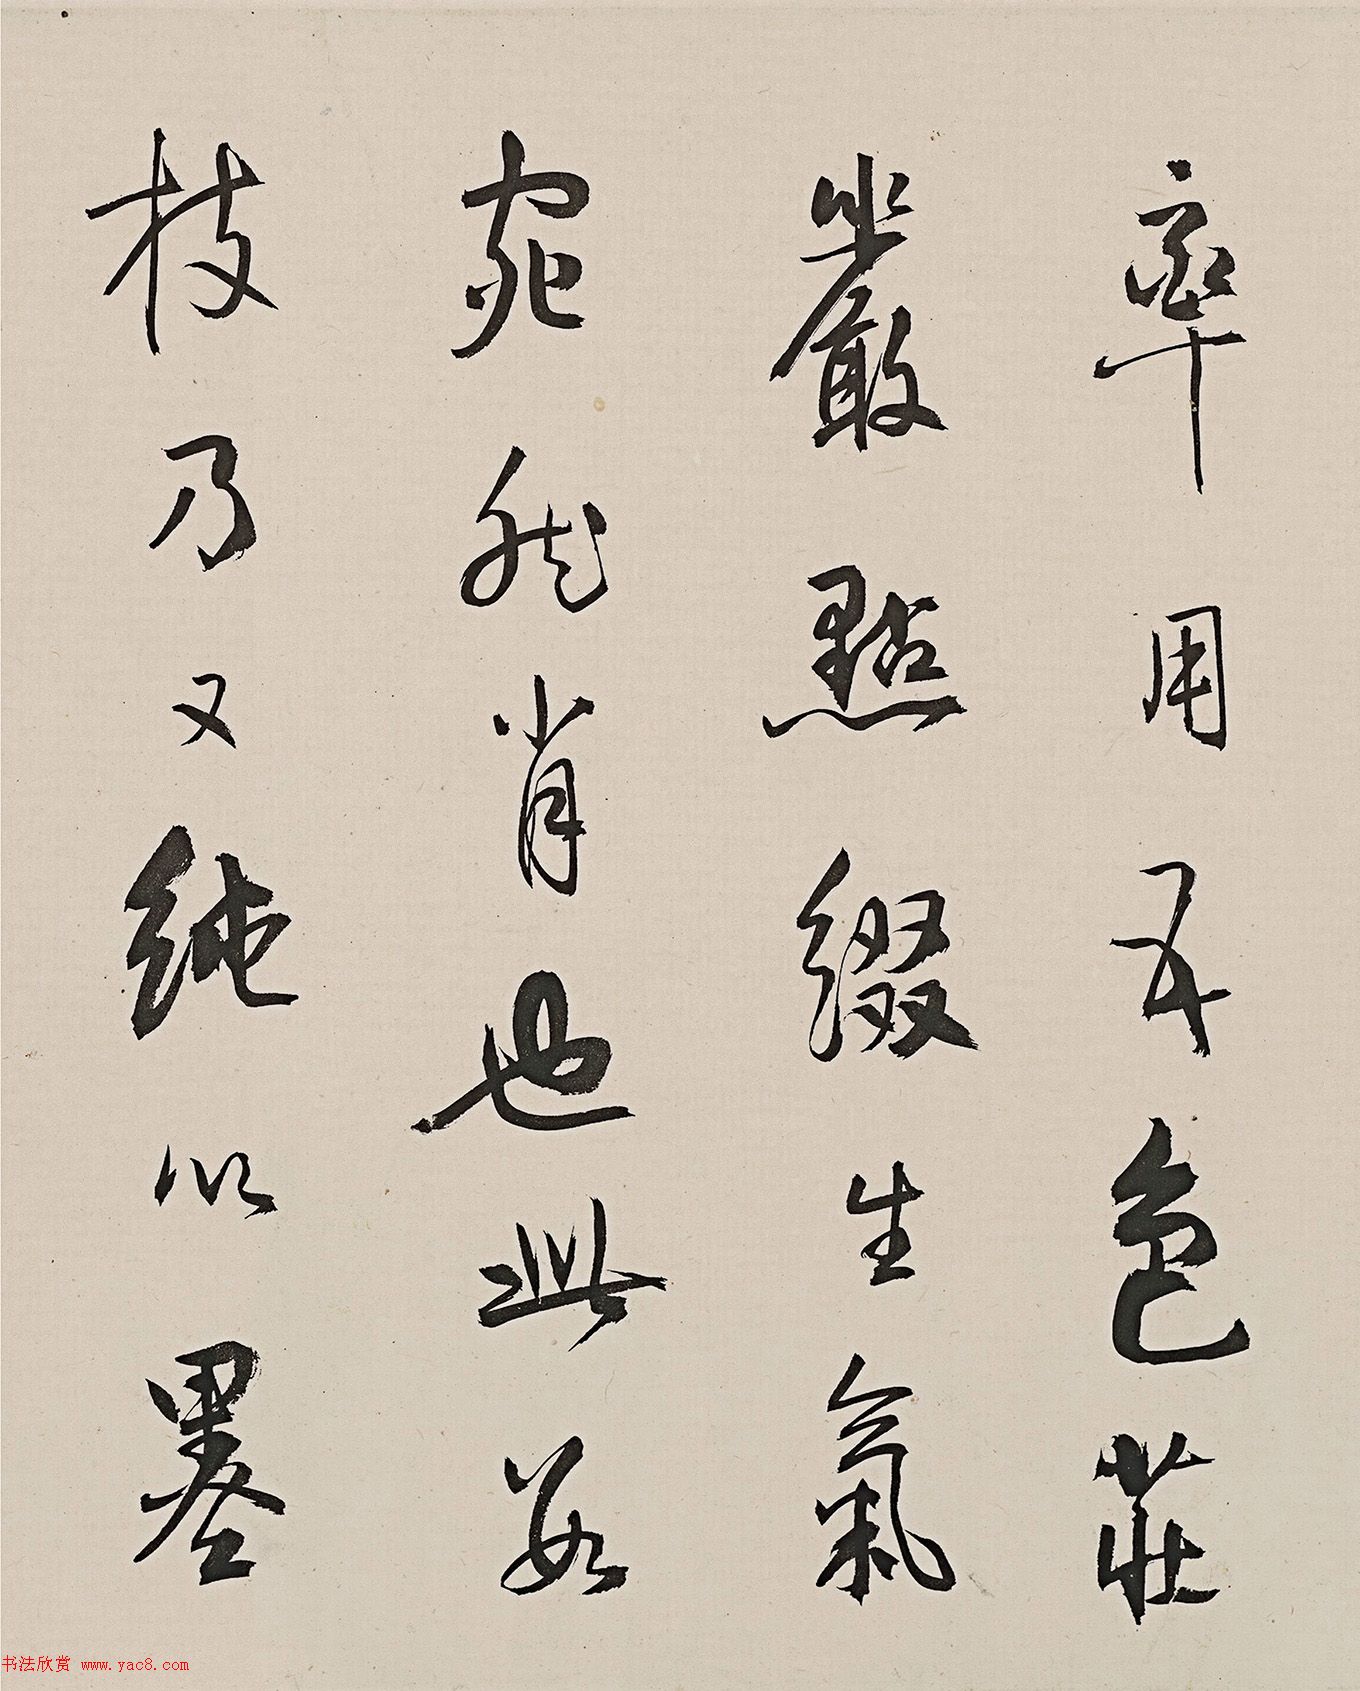 率用五色莊
嚴點綴生氣
宛然肖也此數
枝乃又純以墨
书法欣赏 www.yac8.com